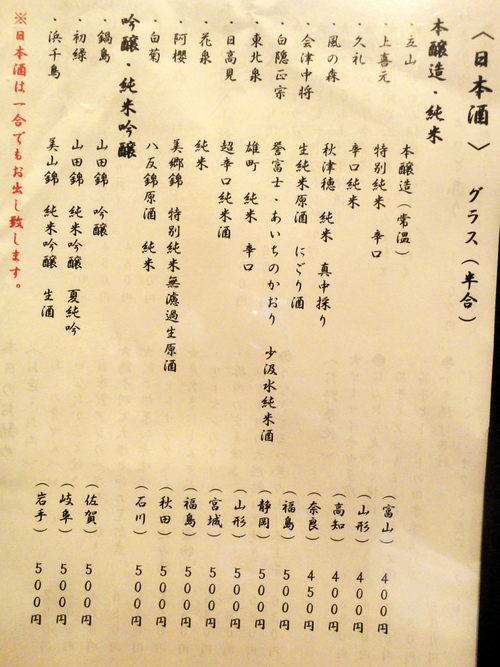 〈日本酒〉 グラス(半合)
本醸造・純米
・立山 本醸造(常温) (富山) 400円
・上喜元 特別純米 辛口 (山形) 400円
・久礼 辛口純米 (高知) 400円
・風の森 秋津穂 純米 真中採り (奈良) 450円
・会津中将 生純米原酒 にごり酒 (福島) 500円
・白隠正宗 誉富士・あいちのかおり 少汲水純米酒 (静岡) 500円
・東北泉 雄町 純米 辛口 (山形) 500円
・日高見 超辛口純米酒 (宮城) 500円
・花泉 純米 (福島) 500円
・阿櫻 美郷錦 特別純米無濾過生原酒 (秋田) 500円
・白菊 八反錦原酒 純米 (石川) 500円
吟醸・純米吟醸
・鍋島 山田錦 吟醸 (佐賀) 500円
・初緑 山田錦 純米吟醸 夏純吟 (岐阜) 500円
・浜千鳥 美山錦 純米吟醸 生酒 (岩手) 500円
※日本酒は一合でもお出し致します。